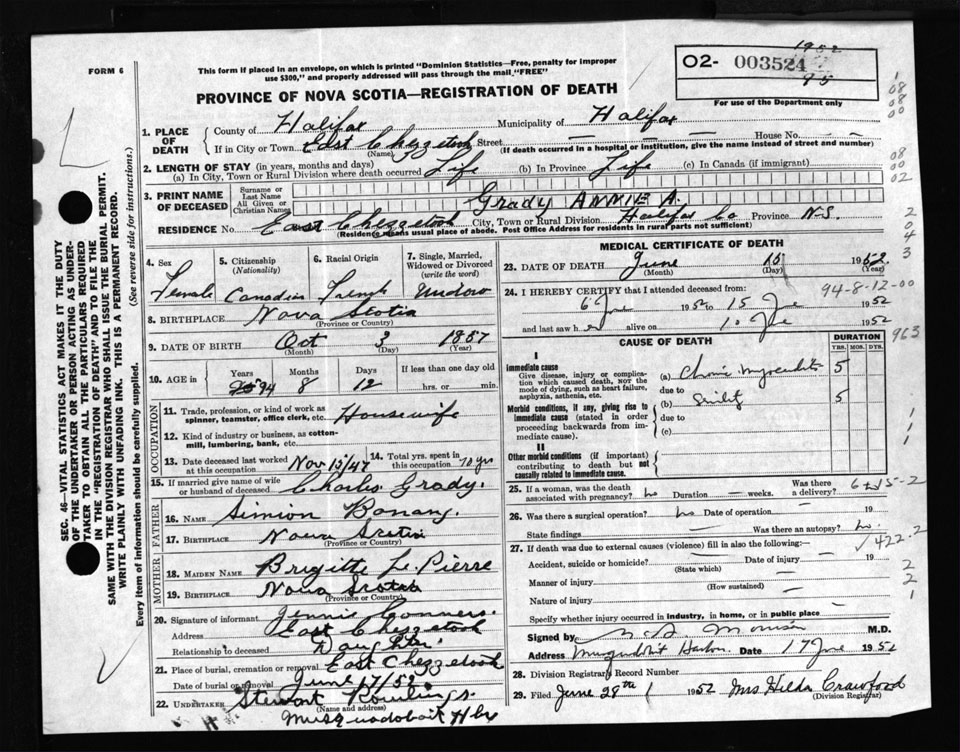 FORM 6
This form if placed in an envelope, on which is printed "Dominion Statistics—Free, penalty for improper
use $300," and properly addressed will pass through the mail "FREE"
1952
O2- 003524
95
For use of the Department only
PROVINCE OF NOVA SCOTIA—REGISTRATION OF DEATH
1. PLACE OF DEATH
County of Halifax Municipality of Halifax
If in City or Town East Chezzetcook Street — House No. —
(Name) (If death occurred in a hospital or institution, give the name instead of street and number)
2. LENGTH OF STAY (in years, months and days)
(a) In City, Town or Rural Division where death occurred Life (b) In Province Life (c) In Canada (if immigrant) —
3. PRINT NAME OF DECEASED
Surname or Last Name
All Given or Christian Names
Grady ANNIE A.
RESIDENCE No. East Chezzetcook City, Town or Rural Division Halifax Co Province N.S.
(Residence means usual place of abode. Post Office Address for residents in rural parts not sufficient)
4. Sex
Female
5. Citizenship (Nationality)
Canadian
6. Racial Origin
French
7. Single, Married, Widowed or Divorced (write the word)
Widow
8. BIRTHPLACE Nova Scotia
(Province or Country)
9. DATE OF BIRTH Oct 3 1857
(Month) (Day) (Year)
10. AGE in Years Months Days If less than one day old
94 8 12 hrs. or min.
OCCUPATION
11. Trade, profession, or kind of work as spinner, teamster, office clerk, etc. Housewife
12. Kind of industry or business, as cotton-mill, lumbering, bank, etc.
13. Date deceased last worked at this occupation Nov 15/47
14. Total yrs. spent in this occupation 70 yrs
15. If married give name of wife or husband of deceased Charles Grady.
FATHER
16. NAME Simion Bonang.
17. BIRTHPLACE Nova Scotia
(Province or Country)
MOTHER
18. MAIDEN NAME Brigitte La Pierre
19. BIRTHPLACE Nova Scotia
(Province or Country)
20. Signature of informant Jennie Conners.
Address East Chezzetcook
Relationship to deceased Daughter
21. Place of burial, cremation or removal East Chezzetcook
Date of burial or removal June 17/52
22. Undertaker Stewart Rowlings.
(Name and address)
Musquodoboit Hbr
MEDICAL CERTIFICATE OF DEATH
23. DATE OF DEATH June 15 1952
(Month) (Day) (Year)
94-8-12-00
24. I HEREBY CERTIFY that I attended deceased from:
6 June 1952 to 15 June 1952
and last saw her alive on 10 June 1952
963
CAUSE OF DEATH
DURATION
YRS. MOS. DYS.
I
Immediate cause
Give disease, injury or complication which caused death, NOT the mode of dying, such as heart failure, asphyxia, asthenia, etc.
(a) Chronic myocarditis 5
due to
Morbid conditions, if any, giving rise to immediate cause (stated in order proceeding backwards from immediate cause).
(b) Senility 5
due to
(c)
II
Other morbid conditions (if important) contributing to death but not causally related to immediate cause.
25. If a woman, was the death associated with pregnancy? no Duration — weeks. Was there a delivery?
6-15-2
26. Was there a surgical operation? no Date of operation — 19
State findings — Was there an autopsy? no.
422.2
27. If death was due to external causes (violence) fill in also the following:—
Accident, suicide or homicide? — Date of injury — 19
(State which)
Manner of injury — (How sustained)
Nature of injury —
Specify whether injury occurred in industry, in home, or in public place —
Signed by M.D.
Address Musquodoboit Harbour Date 17 June 1952
28. Division Registrar's Record Number
29. Filed June 28th 1952 Mrs Hilda Crawford
(Division Registrar)
SEC. 46—VITAL STATISTICS ACT MAKES IT THE DUTY
OF THE UNDERTAKER OR PERSON ACTING AS UNDER-
TAKER TO OBTAIN ALL THE PARTICULARS REQUIRED
IN THE "REGISTRATION OF DEATH" AND TO FILE THE
SAME WITH THE DIVISION REGISTRAR WHO SHALL ISSUE THE BURIAL PERMIT.
WRITE PLAINLY WITH UNFADING INK. THIS IS A PERMANENT RECORD.
Every item of information should be carefully supplied. (See reverse side for instructions.)